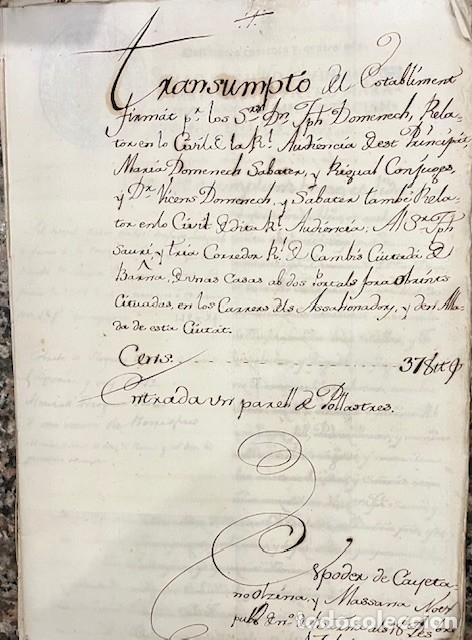 transumpto del Establiment
firmát pr. los Srs. Drs. Jph Domenech, Rela-
tor en lo Civil de la Rl. Audiencia de est Principát
Maria Domenech Sabater, y Riqual Conjuges,
y Dr. Vicens Domenech, y Sabater també Rela-
tor en lo Civil de dita Rl. Audiencia; Al Sr. Jph
Saurí y tria Corredor Rl. de Cambis Ciutadá de
Barna. de unas Casas ab dos Portals fora obrints
Cituadas, en los Carrers dels Assahonadors, y den Alla-
da de esta Ciutát.
Cens.
Entrada un parell de Pollastres.
poder de Cayeta-
no y Massana Nott.
pub.
todocoleccion